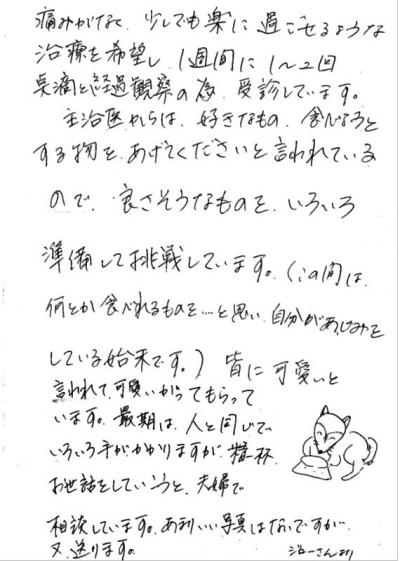 痛みがなく、少しでも楽に過ごせるような
治療を希望し、1週間に1〜2回
点滴と経過観察の為、受診しています。
主治医からは、好きなもの、食べようと
する物を、あげてくださいと言われている
ので、良さそうなものを、いろいろ
準備して挑戦しています。(この間は、
何とか食べれるものを……と思い、自分があじみを
している始末です。) 皆に可愛いと
言われて、可愛いがってもらって
います。最期は、人と同じで、
いろいろ手がかかりますが、精一杯
お世話をしていこうと、夫婦で
相談しています。あまりいい写真はないですが、
又、送ります。